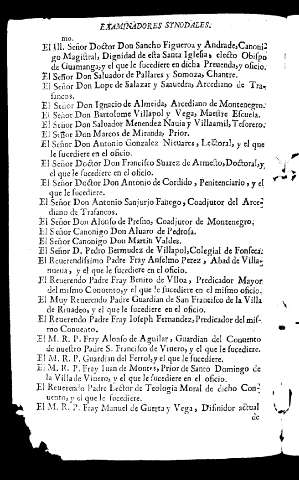 EXAMINADORES SYNODALES.
mo.
El Ill. Señor Doctor Don Sancho Figueroa y Andrade, Canoni-
go Magistral, Dignidad de esta Santa Iglesia, electo Obispo
de Guamanga, y el que le sucediere en dicha Preuenda, y oficio.
El Señor Don Saluador de Pallares y Somoza, Chantre.
El Señor Don Lope de Salazar y Saauedra, Arcediano de Tra-
sancos.
El Señor Don Ignacio de Almeida, Arcediano de Montenegro.
El Señor Don Bartolome Villapol y Vega, Maestre Escuela.
El Señor Don Saluador Menendez Nauia y Villaamil, Tesorero.
El Señor Don Marcos de Miranda, Prior.
El Señor Don Antonio Gonzalez Lectoral, y el que
le sucediere en el oficio.
El Señor Doctor Don Francisco Suarez de Armesto, Doctoral, y
el que le sucediere en el oficio.
El Señor Doctor Don Antonio de Cordido, Penitenciario, y el
que le sucediere.
El Señor Don Antonio Sanjurjo Fanego, Coadjutor del Arce-
diano de Trasancos.
El Señor Don Alonso de Presno, Coadjutor de Montenegro.
El Señor Canonigo Don Aluaro de Pedrosa.
El Señor Canonigo Don Martin Valdes.
El Señor D. Pedro Bermudez de Villapol, Colegial de Fonseca.
El Reuerendissimo Padre Fray Anselmo Perez, Abad de Villa-
nueua, y el que le sucediere en el oficio.
El Reuerendo Padre Fray Benito de Vlloa, Predicador Mayor
del mismo Conuento, y el que le sucediere en el mismo oficio.
El Muy Reuerendo Padre Guardian de San Francisco de la Villa
de Riuadeo, y el que le sucediere en el oficio.
El Reuerendo Padre Fray Ioseph Fernandez, Predicador del mis-
mo Conuento.
El M. R. P. Fray Alonso de Aguilar, Guardian del Conuento
de nuestro Padre S. Francisco de Viuero, y el que le sucediere.
El M. R. P. Guardian del Ferrol, y el que le sucediere.
El M. R. P. Fray Iuan de Montes, Prior de Santo Domingo de
la Villa de Viuero, y el que le sucediere en el oficio.
El Reuerendo Padre Lector de Teologia Moral de dicho Con-
uento, y el que le sucediere.
El M. R. P. Fray Manuel de Gueyta y Vega, Difinidor actual
de